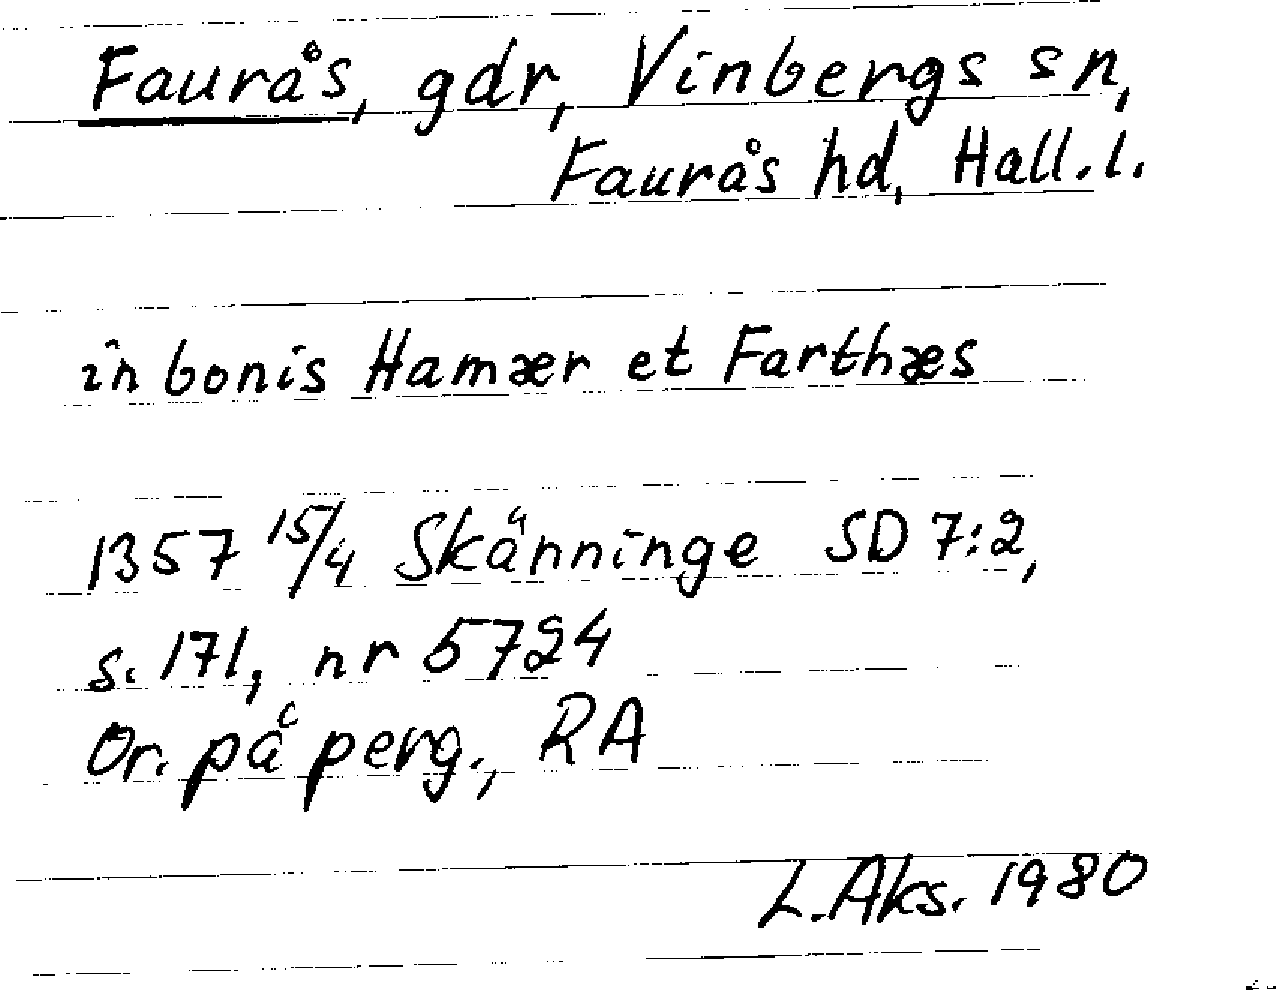 Faurås, gdr, Vinbergs sn,
Faurås hd, Hall. l.
in bonis Hamær et Farthæs
1357 15/4 Skänninge SD 7:2,
s. 171, nr 5724
Or. på perg., RA
L. Aks. 1980